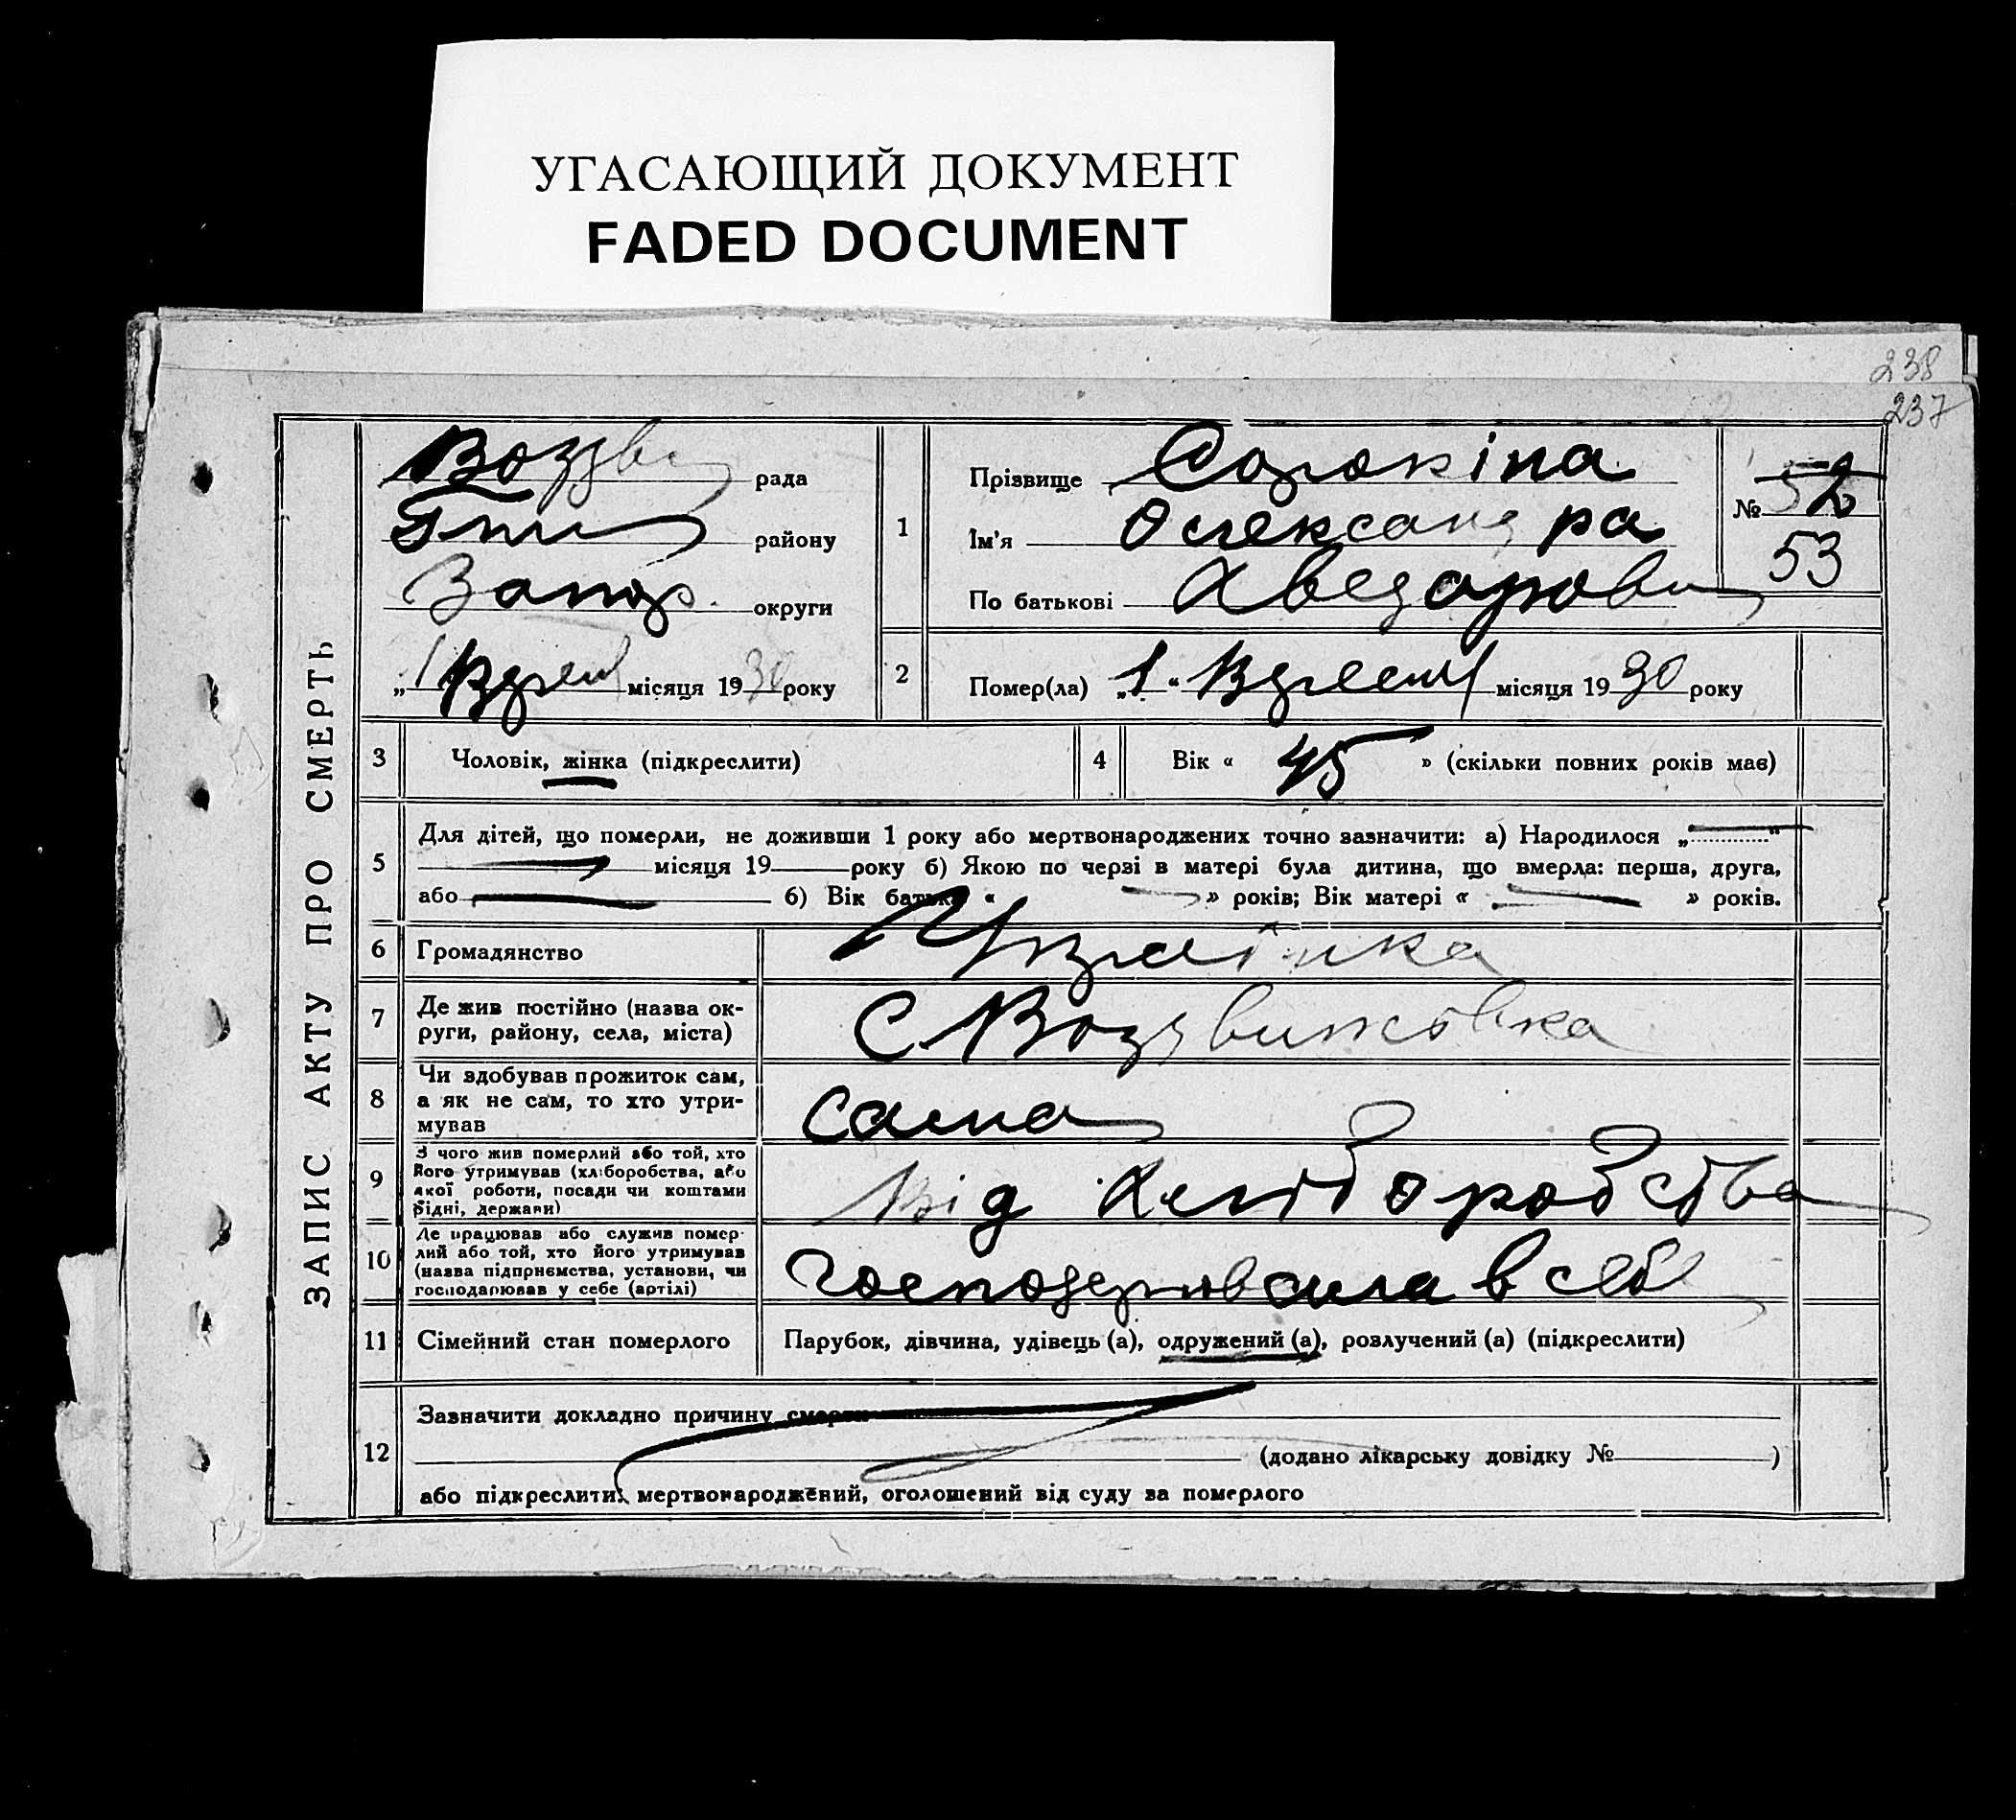 УГАСАЮЩИЙ ДОКУМЕНТ
FADED DOCUMENT
238
237
ЗАПИС АКТУ ПРО СМЕРТЬ
Воздви рада
району
Запор. округи
„1 Вресня місяця 1930 року
1
Прізвище Сорокіна
Ім'я Олександра
По батькові Хведоровн
№ 52
53
2
Помер(ла) „1“ Вресня місяця 1930 року
3
Чоловік, жінка (підкреслити)
4
Вік « 45 » (скільки повних років має)
5
Для дітей, що померли, не доживши 1 року або мертвонароджених точно зазначити: а) Народилося „ “
місяця 19 року б) Якою по черзі в матері була дитина, що вмерла: перша, друга,
або б) Вік батька « » років; Вік матері « » років.
6
Громадянство Украінка
7
Де жив постійно (назва ок-
руги, району, села, міста)
С Воздвижовка
8
Чи здобував прожиток сам,
а як не сам, то хто утри-
мував
Сама
9
З чого жив померлий або той, хто
його утримував (хліборобства, або
якої роботи, посади чи коштами
рідні, держави)
Від хлиборобства
10
Де працював або служив помер-
лий або той, хто його утримував
(назва підприємства, установи, чи
господарював у себе (артілі)
в себе
11
Сімейний стан померлого
Парубок, дівчина, удівець (а), одружений (а), розлучений (а) (підкреслити)
12
Зазначити докладно причину смерти
(додано лікарську довідку № )
або підкреслити: мертвонароджений, оголошений від суду за померлого